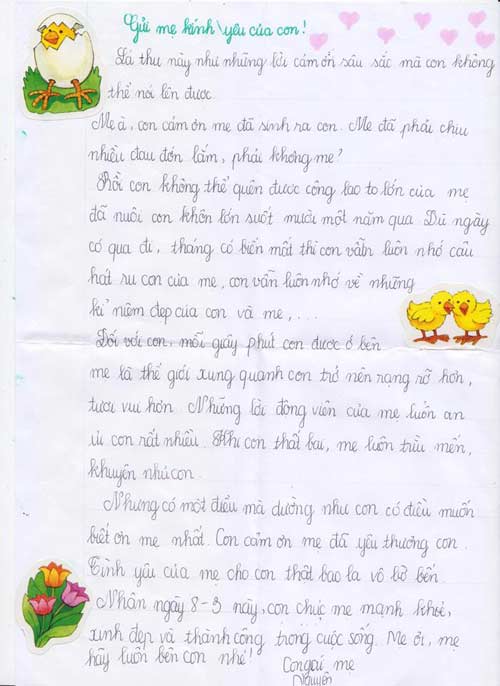 Gửi mẹ kính yêu của con!
Lá thư này như những lời cảm ơn sâu sắc mà con không
thể nói lên được.
Mẹ à, con cảm ơn mẹ đã sinh ra con. Mẹ đã phải chịu
nhiều đau đớn lắm, phải không mẹ?
Rồi con không thể quên được công lao to lớn của mẹ
đã nuôi con khôn lớn suốt mười một năm qua. Dù ngày
có qua đi, tháng có biến mất thì con vẫn luôn nhớ câu
hát ru con của mẹ, con vẫn luôn nhớ về những
kỉ niệm đẹp của con và mẹ, ...
Đối với con, mỗi giây phút con được ở bên
mẹ là thế giới xung quanh con trở nên rạng rỡ hơn,
tươi vui hơn. Những lời động viên của mẹ luôn an
ủi con rất nhiều. Khi con thất bại, mẹ luôn trìu mến,
khuyên nhủ con.
Nhưng có một điều mà dường như con có điều muốn
biết ơn mẹ nhất. Con cảm ơn mẹ đã yêu thương con.
Tình yêu của mẹ cho con thật bao la vô bờ bến.
Nhân ngày 8-3 này, con chúc mẹ mạnh khoẻ,
xinh đẹp và thành công trong cuộc sống. Mẹ ơi, mẹ
hãy luôn bên con nhé!
Con gái mẹ
Nguyên